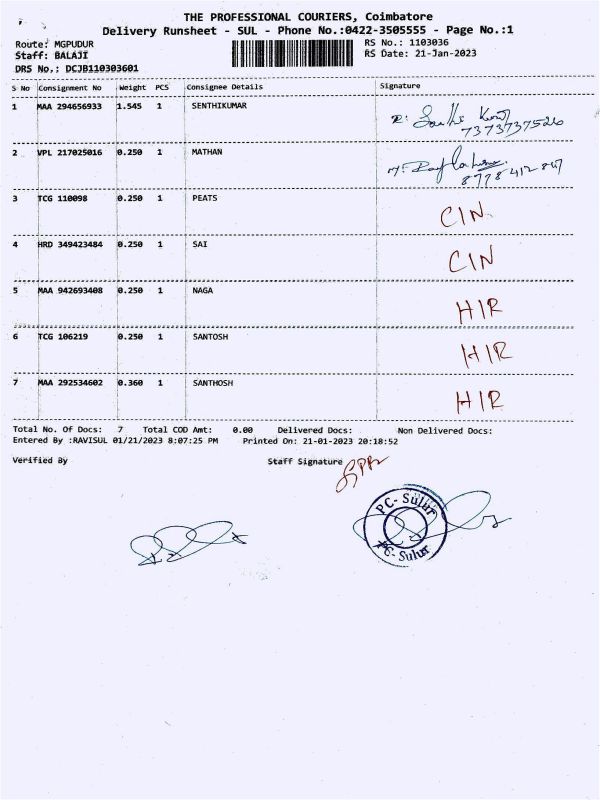 THE PROFESSIONAL COURIERS, Coimbatore
Delivery Runsheet - SUL - Phone No.:0422-3505555 - Page No.:1
Route: MGPUDUR RS No.: 1103036
Staff: BALAJI RS Date: 21-Jan-2023
DRS No.: DCJB110303601
S No Consignment No Weight PCS Consignee Details Signature
1 MAA 294656933 1.545 1 SENTHIKUMAR
7373737526
2 VPL 217025016 0.250 1 MATHAN
8778412847
3 TCG 110098 0.250 1 PEATS CIN
4 HRD 349423484 0.250 1 SAI CIN
5 MAA 942693408 0.250 1 NAGA HIR
6 TCG 106219 0.250 1 SANTOSH HIR
7 MAA 292534602 0.360 1 SANTHOSH HIR
Total No. Of Docs: 7 Total COD Amt: 0.00 Delivered Docs: Non Delivered Docs:
Entered By :RAVISUL 01/21/2023 8:07:25 PM Printed On: 21-01-2023 20:18:52
Verified By Staff Signature
PC- Sulur
PC- Sulur